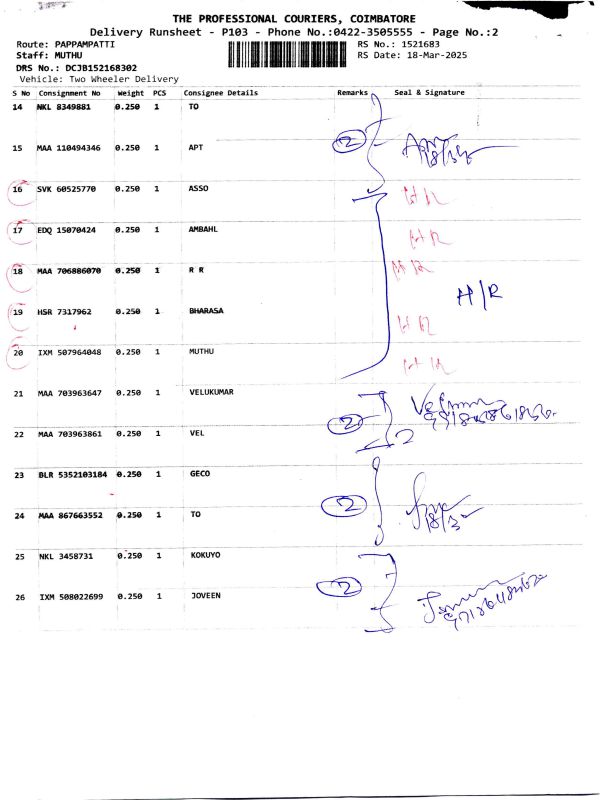 THE PROFESSIONAL COURIERS, COIMBATORE
Delivery Runsheet - P103 - Phone No.:0422-3505555 - Page No.:2
Route: PAPPAMPATTI RS No.: 1521683
Staff: MUTHU RS Date: 18-Mar-2025
DRS No.: DCJB152168302
Vehicle: Two Wheeler Delivery
S No Consignment No Weight PCS Consignee Details Remarks Seal & Signature
14 NKL 8349881 0.250 1 TO
15 MAA 110494346 0.250 1 APT 2
16 SVK 60525770 0.250 1 ASSO H R
17 EDQ 15070424 0.250 1 AMBAHL H R
18 MAA 706886070 0.250 1 R R H R
H/R
19 HSR 7317962 0.250 1 BHARASA H R
20 IXM 507964048 0.250 1 MUTHU H R
21 MAA 703963647 0.250 1 VELUKUMAR
2
22 MAA 703963861 0.250 1 VEL 2
23 BLR 5352103184 0.250 1 GECO
2
24 MAA 867663552 0.250 1 TO
25 NKL 3458731 0.250 1 KOKUYO
2
26 IXM 508022699 0.250 1 JOVEEN